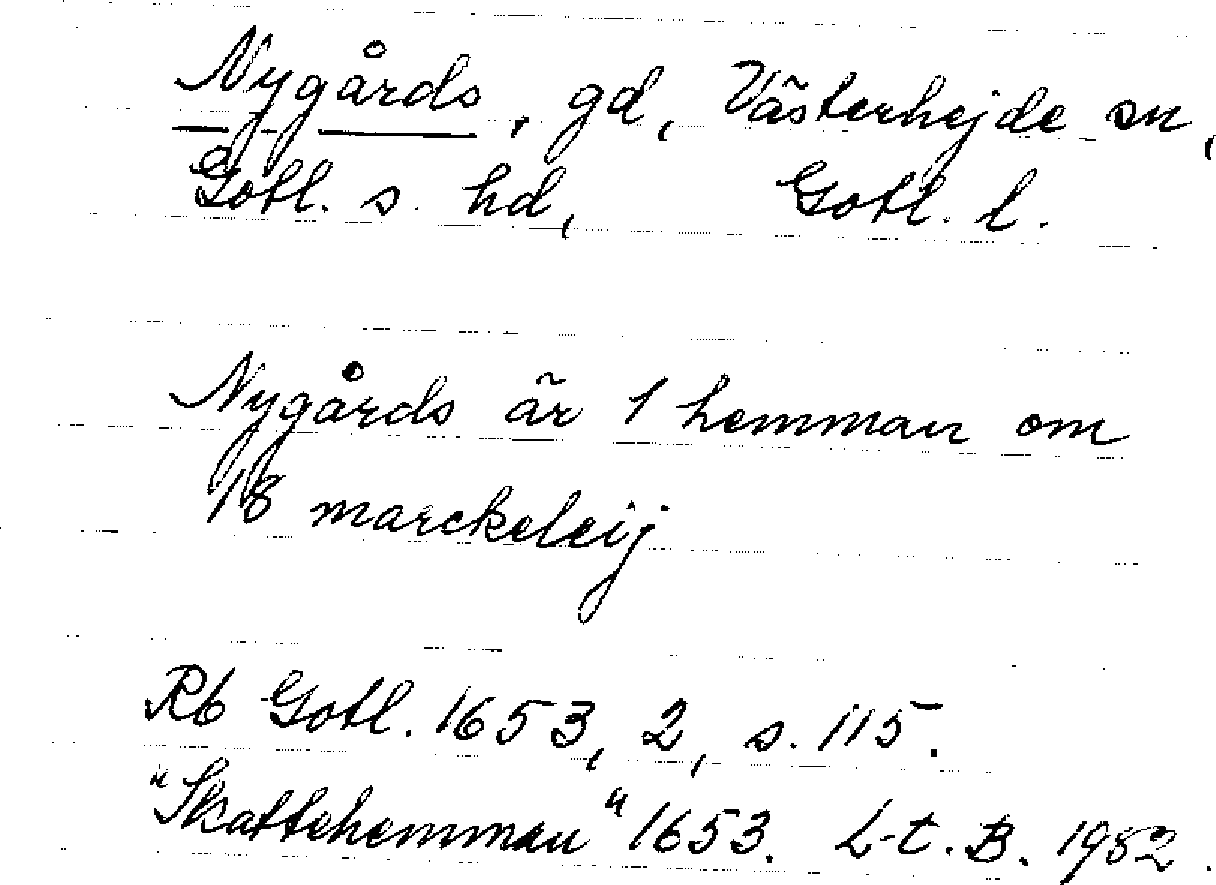 Nygårds, gd, Västerhejde sn,
Gotl. s. hd, Gotl. l.
Nygårds är 1 hemman om
18 marckeleij
Rb Gotl. 1653, 2, s. 115.
"Skattehemman" 1653. L-t. B. 1952.